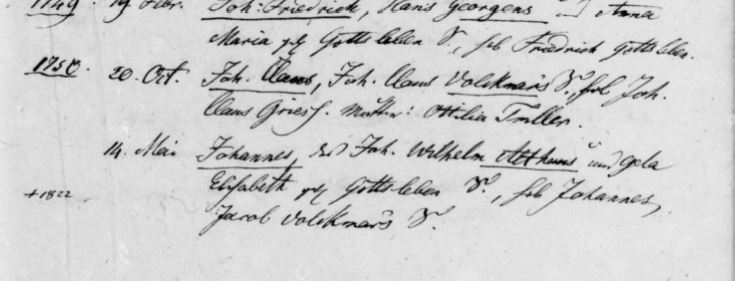 1749. 19 Febr. Joh: Friedrich, Hans Georgens und Anna
Maria geb Gottsleben S., sub Friedrich Gottsleben.
1750. 20. Oct. Joh. Claus, Joh. Claus Volckmar's S., sub Joh.
Claus Gries f. Mutter: Ottilia Truller.
14. Mai Johannes, des Joh. Wilhelm und Gela
+1822 Elisabeth geb Gottsleben S., sub Johannes,
Jacob Volckmar's S.